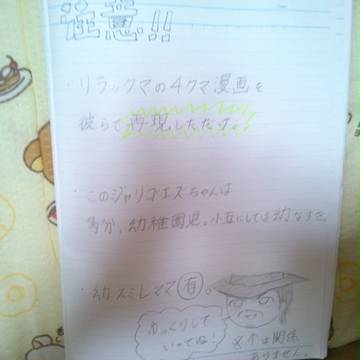 注意!!
・リラックマの4クマ漫画を
彼らで再現しただけ。
・このジャリゴエスちゃんは
多分、幼稚園児。小五にしては幼なすぎ
・幼スミレママ有。
ゆっくりして
いってね!
※↑は関係
ありません。